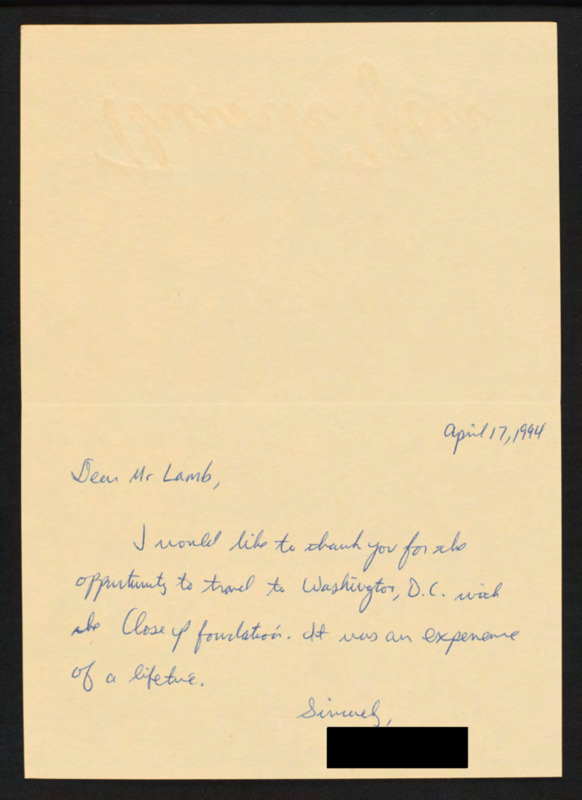 April 17, 1994
Dear Mr Lamb,
I would like to thank you for the
opportunity to travel to Washington, D.C. with
the Close up foundation. It was an experience
of a lifetime.
Sincerely,